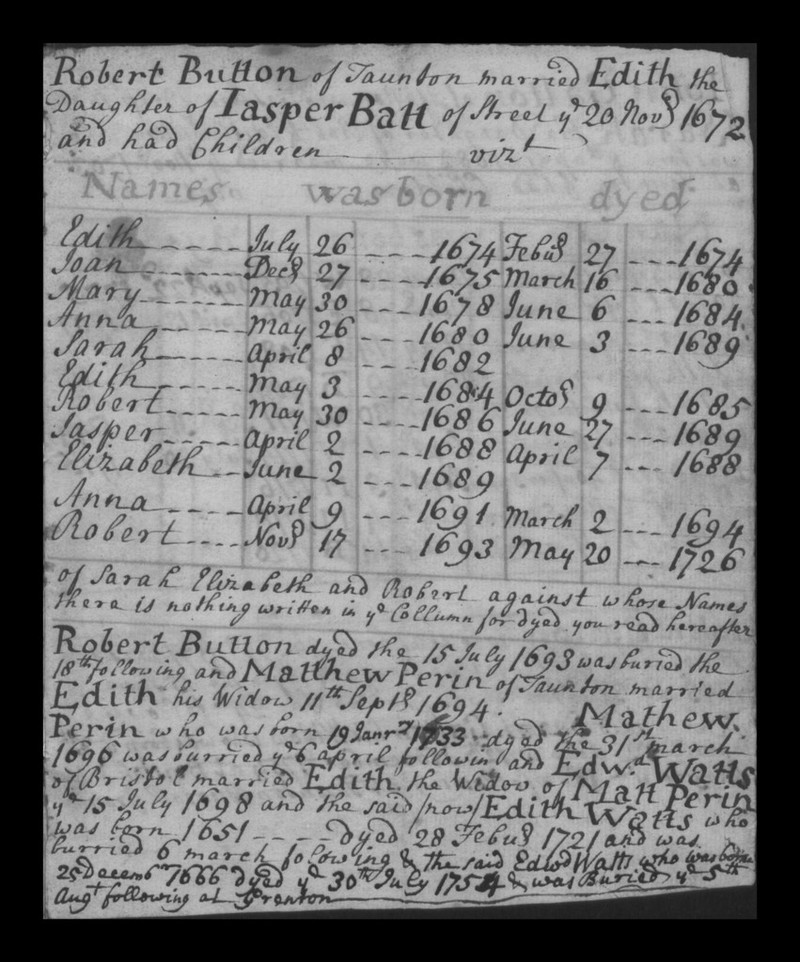 Robert Button of Taunton married Edith the
Daughter of Iasper Batt of Street yᵉ 20 Novʳ 1672
and had Children ———— vizᵗ
Names was born dyed
Edith - - - - - July 26 - - - - 1674 Febuʳ 27 - - - 1674
Joan - - - - - Decʳ 27 - - - - 1675 March 16 - - - 1680
Mary - - - - - May 30 - - - - 1678 June 6 - - - 1684
Anna - - - - - May 26 - - - - 1680 June 3 - - - 1689
Sarah - - - - - April 8 - - - - 1682
Edith - - - - - May 3 - - - - 1684 Octoʳ 9 - - - 1685
Robert - - - - - May 30 - - - - 1686 June 27 - - - 1689
Iasper - - - - - April 2 - - - - 1688 April 7 - - - 1688
Elizabeth - - June 2 - - - - 1689
Anna - - - - - April 9 - - - - 1691 March 2 - - - 1694
Robert - - - - Novʳ 17 - - - - 1693 May 20 - - - 1726
of Sarah Elizabeth and Robert against whose Names
there is nothing written in yᵉ Collumn for dyed you read hereafter
Robert Button dyed the 15 July 1693 was buried the
18ᵗʰ following and Matthew Perin of Taunton married
Edith his Widow 11ᵗʰ Septʳ 1694. Mathew
Perin who was born 19 Janrʸ dyed the 31ˢᵗ march
1696 was burried yᵉ 6 april followin and Edwᵈ Watts
of Bristol married Edith the Widow of Matt Perin
yᵉ 15 July 1698 and the said /now/ Edith Watts who
was born 1651 - - - - dyed 28 Febuʳ 1721 and was
burried 6 march folowing & the said Edwᵈ Watts who was born
25 Decembʳ 1666 dyed yᵉ 30ᵗʰ July 1754 & was Buried yᵉ 5ᵗʰ
Augᵗ following at